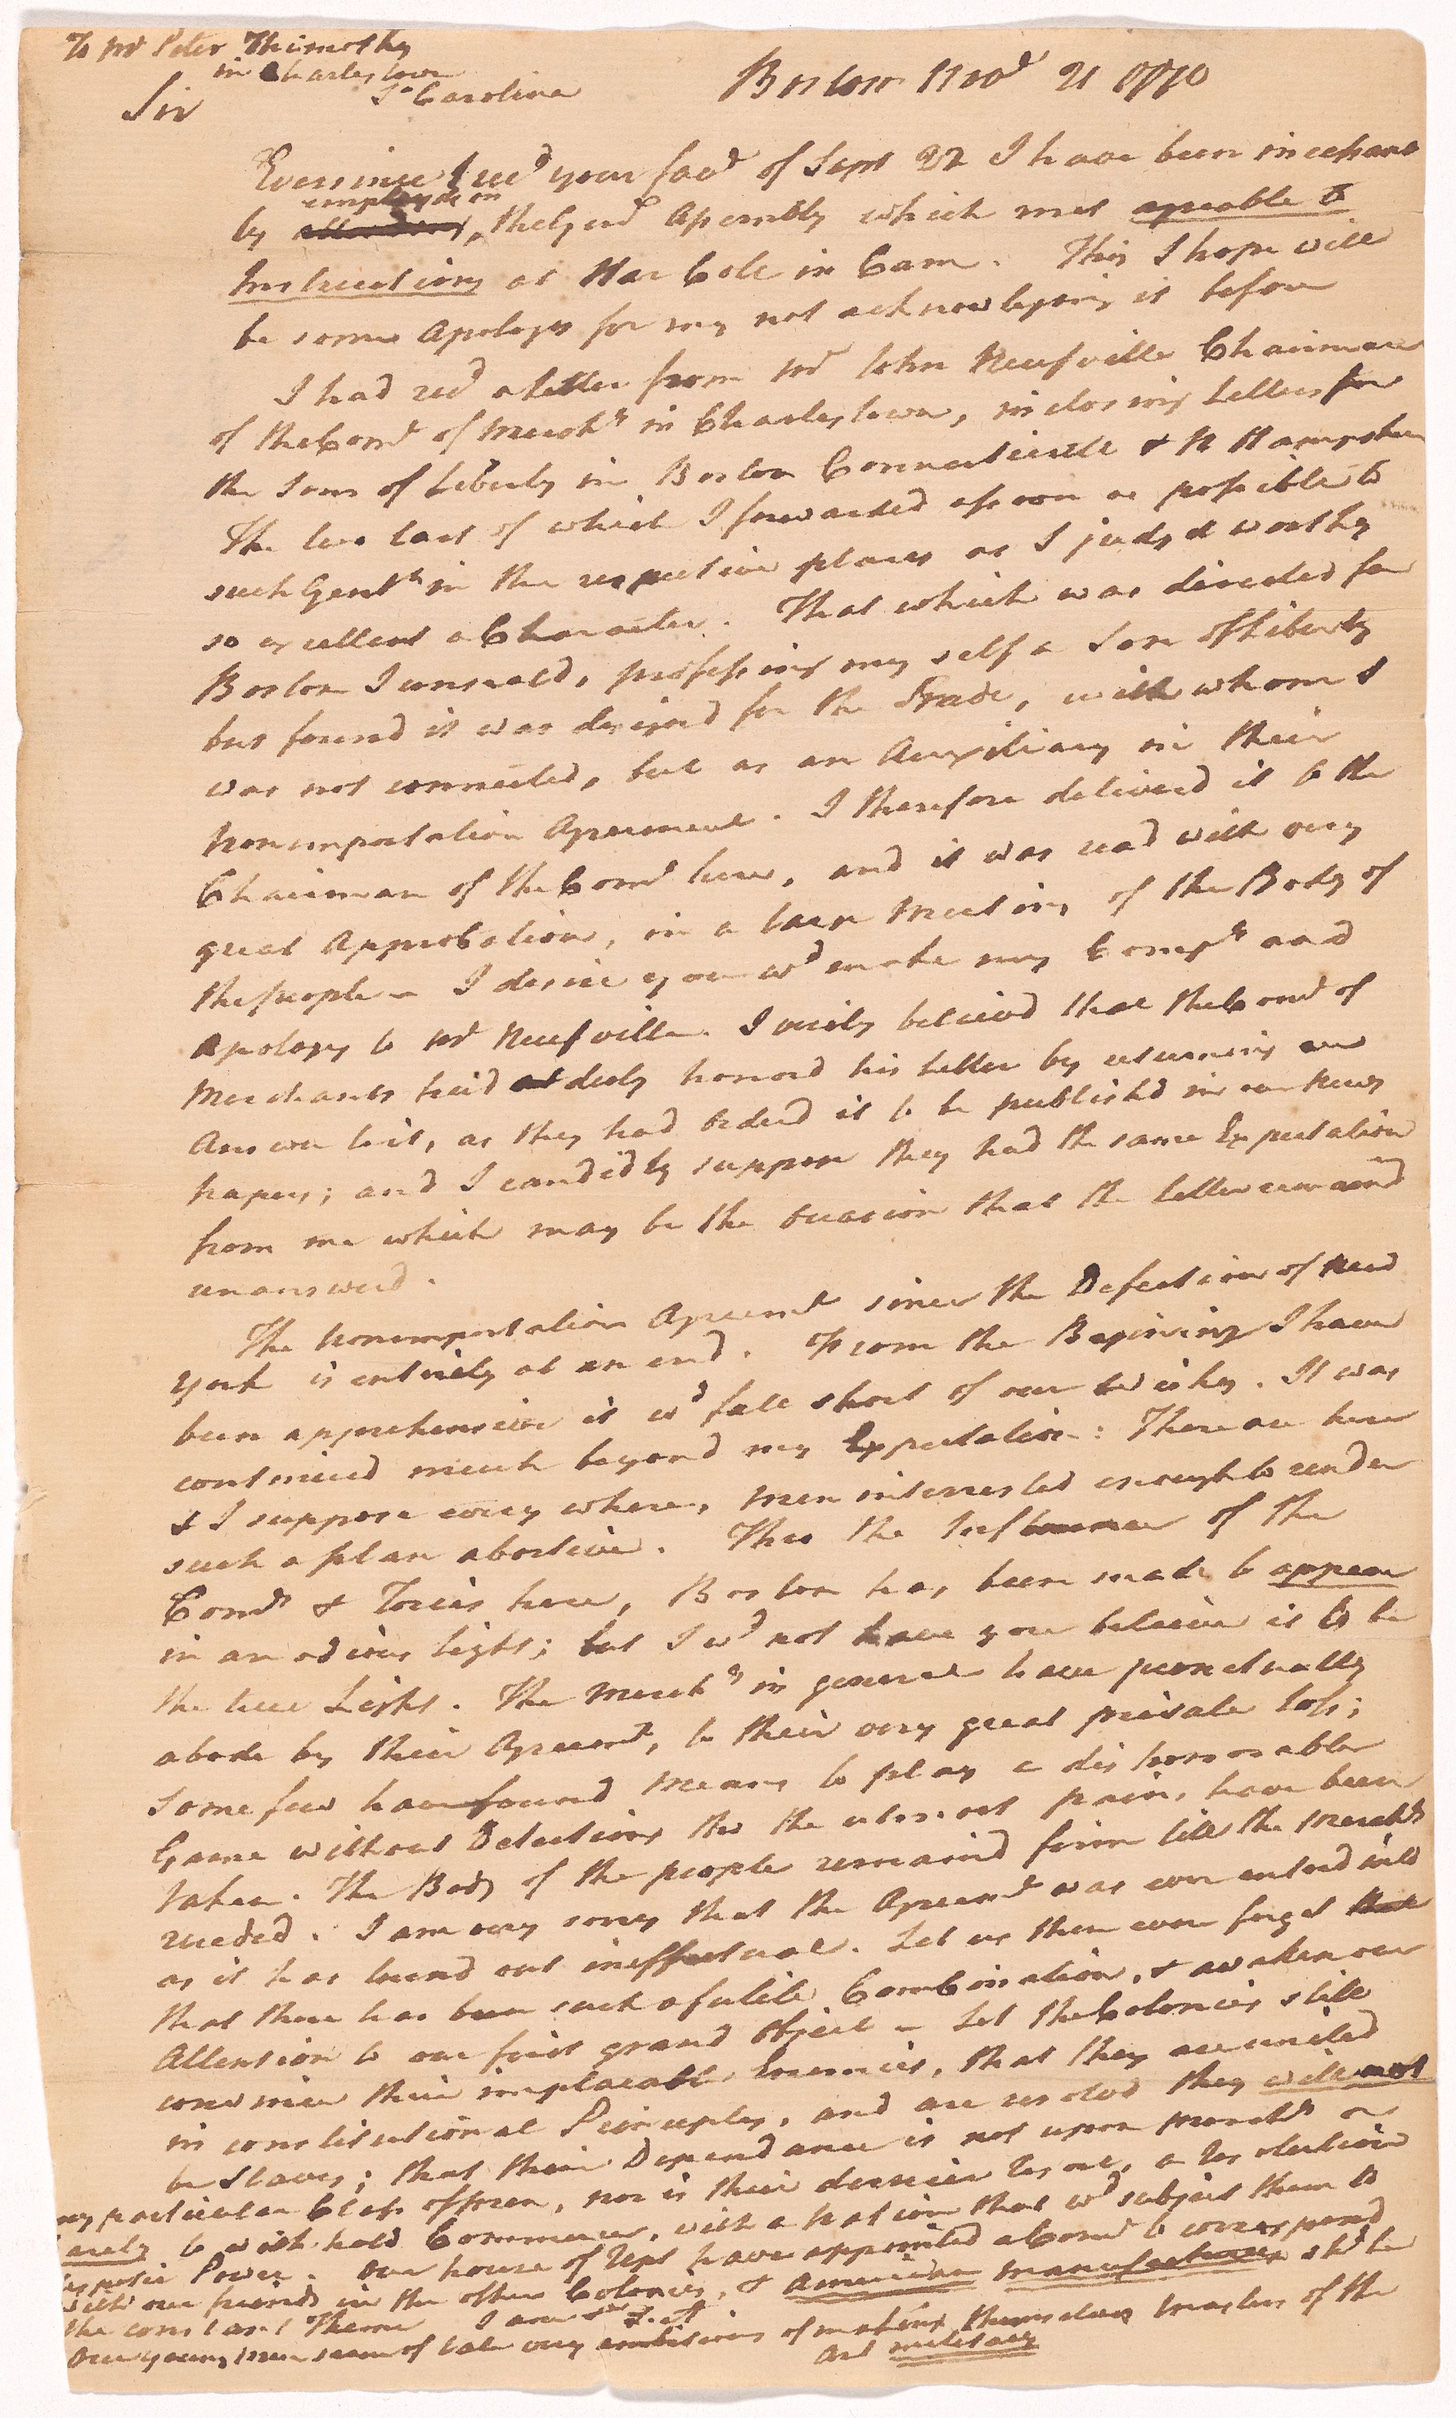 To Mr Peter Thimothy
in Charlestown
So Carolina
Boston Novr 21 1770
Sir
Ever since I recd your favr of Sept 22 I have been
employed in
by attending, the Genl Assembly which met agreable to
Instructions at Harvd Coll in Cam. This I hope will
be some Apology for my not acknowledging it before
I had recd a Letter from Mr John Neufville Chairman
of the Come of Mercht in Charlestown, inclosing Letters for
the Sons of Liberty in Boston Connecticutt & N Hampshire
The two last of which I forwarded as soon as possible to
such Gentn in the respective places as I judgd worthy
so excellent a Character. That which was directed for
Boston I unseald, professing my self a Son of Liberty
but found it was designd for the Trade, with whom I
was not connected, but as an Auxiliary in their
Nonimportation Agreement. I therefore deliverd it to the
Chairman of the Come here, and it was read with very
great Approbation, in a large Meeting of the Body of
the people - I desire you wd make my Compts and
Apology to Mr Neufville. I verily believd that the Come of
Merchants had duly honord his Letter by returning an
Answer to it, as they had orderd it to be publishd in our News
papers; and I candidly suppose they had the same Expectation
from me which may be the occasion that the Letter remaind
unanswerd.
The Nonimportation Agreemt since the Defection of New
York is entirely at an end. From the Begining I have
been apprehensive it wd fall short of our Wishes. It was
continued much beyond my Expectation: There are here
& I suppose every where, men interrested enough to render
such a plan abortive. Thro the Influence of the
Comrs & Tories here, Boston has been made to appear
in an odious light; but I wd not have you believe it to be
the true Light. The Merchts in general have punctually
abode by their Agreemt, to their very great private loss;
Some few have found means to play a dishonorable
Game without Detection, tho the utmost pains have been
taken. The Body of the people remaind firm till the Merchts
receded. I am very sorry that the Agreemt was ever enterd into
as it has turnd out ineffectual. Let us then ever forget that
that there has been such a futile Combination, & awaken our
Attention to our first grand object - Let the Colonies still
convince their implacable Enemies, that they are united
in constitutional Principles, and are resolvd they will not
be Slaves; that their Dependance is not upon Merchts or
any particular Class of men, nor is their dernier resort, a resolution
barely to withhold Commerce, with a nation that wd subject them to
despotic Power. Our house of Reps have appointed a Come to correspond
with our friends in the other Colonies, & American manufactures shd be
the constant Theme I am
Our young men seem of late very ambitious of making themselves masters of the
Art military